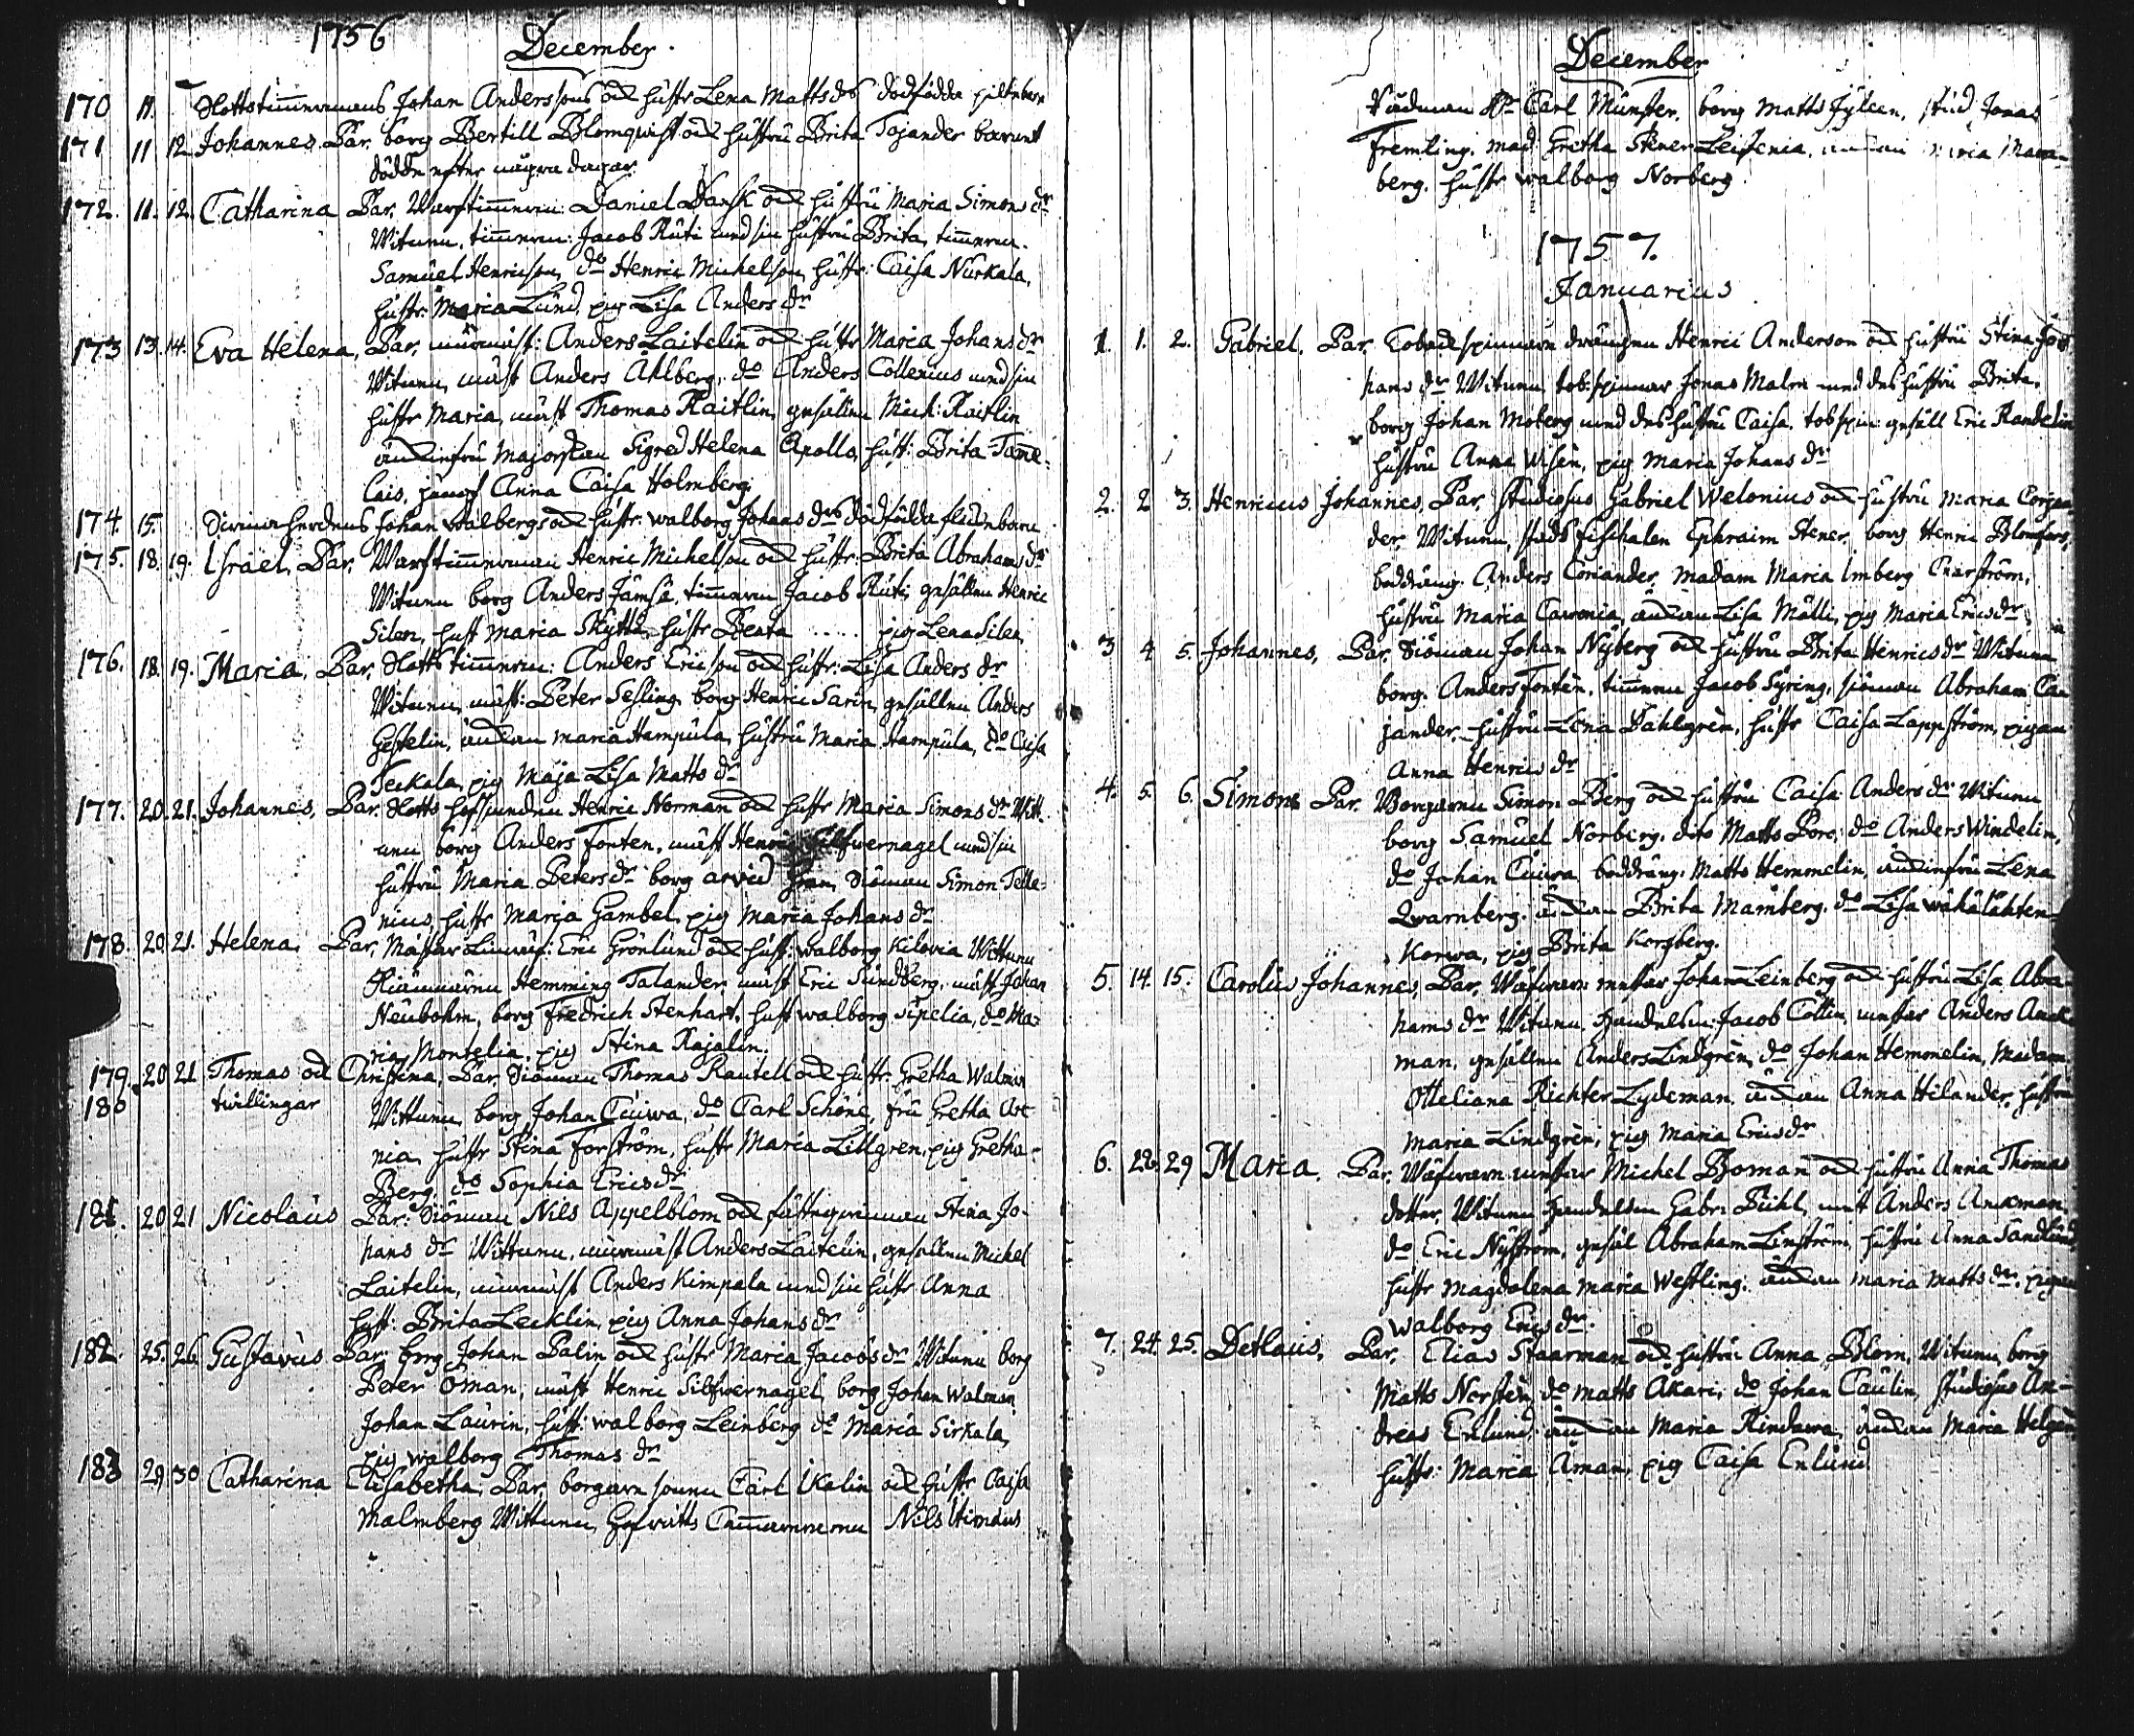 1756
December.
170 11. Slottstimmermans Johan Anderssons och hustr Lena Mattsdrs dödfödda piltebarn
171 11 12 Johannes Par. borg Bertill Blomqwist och hustru Brita Tojander barnet
dödde efter några dagar
172. 11. 12. Catharina Par. Warfstimmerm: Daniel Dansk och hustru Maria Simonsdr
Witnen, timmerm: Jacob Rüti med sin hustru Brita, timmerm.
Samuel Henricson, do Henric Michelson, hustr: Caisa Nurkala,
hustr: Maria Lund, pig Lisa Andersdr
173 13. 14. Eva Helena, Par. murmäst: Anders Laitelin och hustr Maria Johansdr
Witnen, mäst Anders Ahlberg, do Anders Collenius med sin
hustr Maria, mäst Thomas Raitlin, gesällen Mich: Raitlin
änckiefru Majorskan Sigred Helena Apollo, hust: Brita Tame-
lais, jungf Anna Caisa Holmberg.
174. 15. Johan Walbergs och hustr. Walborg Johansdrs dödfödda flickebarn
175. 18. 19. Israel, Par. Warfstimmerman Henric Michelson och hustr. Brita Abrahamsdr
Witnen borg Anders Jämsä, timmerm Jacob Rüti, gesällen Henric
Silen, hust Maria Skytta, hustr Beata ..... pig Lena Silen
176. 18. 19. Maria. Par. Slottstimmerm: Anders Ericson och hustr: Lisa Andersdr
Witnen, mäst: Peter Sesling, borg Henric Sarin, gesällen Anders
Gestelin, änckan Maria Hampula, hustru Maria Hampula, do Caisa
Teckala, pig Maja Lisa Mattsdr
177. 20. 21. Johannes, Par. Slotts Henric Norman och hustr Maria Simonsdr Witt-
nen borg Anders Fonten, mäst Henric Silfwernagel med sin
hustru Maria Petersdr borg Arvid Gran, Siöman Simon Telle-
nius, hustr Maria Gambel, pig Maria Johansdr
178. 20. 21. Helena, Par. Mästar Eric Grönlund och hust: Walborg Kilonia Wittnen
Hemming Talander, mäst Eric Sundberg, mäst Johan
Neubohm, borg Fredrich Stenhart, hust Walborg Sipelia, do Ma-
ria Montelia, pig Stina Rajalin.
179 20 21 Thomas och Christina, Par. Siöman Thomas Rautell och hustr. Gretha Walmin
180 twillingar Wittnen, borg Johan Cuiwa, do Carl Schöne, fru Gretha Arc
nia, hustr Stina Forström, hustr Maria Lillgren, pig Gretha
Berg, do Sophia Ericsdr
181. 20 21 Nicolaus Par: Siöman Nils Appelblom och Stina Jo-
hansdr Wittnen, murmäst Anders Laitelin, gesällen Michel
Laitelin, murmäst Anders Kimpala med sin hustr Anna
hust: Brita Lecklin, pig Anna Johansdr
182. 25. 26. Gustavus Par. borg Johan Palin och hustr Maria Jacobsdr Witnen borg
Peter Öman, mäst Henric Silfwernagel, borg Johan Walman
Johan Laurin, hust: Walborg Leinberg do Maria Sirkala,
pig Walborg Thomasdr
183 29 30 Catharina Elisabetha, Par. borgare sonen Carl Ikalin och hustr Caisa
Malmberg Wittnen, Hofrätts Nils
December
Rådman Hr Carl Münster, borg Matts Jyleen, stud Jonas
Fremling, mad Gretha Stener Leistenia, Maria Mara-
berg. hustr Walborg Norberg.
1757.
Januarius
1. 1. 2. Gabriel. Par. Tobackspinnare drängen Henric Anderson och hustru Stina Jo-
hansdr Witnen, tob: spinnar Jonas Malm med des hustru Brita,
borg Johan Moberg med des hustru Caisa, tobspin: gesäll Eric Randelin
hustru Anna Wisén, pig Maria Johansdr
2. 2 3. Henricus Johannes, Par. Studiosus Gabriel Welonius och hustru Maria Corjan-
der. Witnen, stads fischalen Ephraim Stener, borg Henric Blomfors,
boddräng: Anders Coriander, Madam Maria Imberg Enarström,
hustru Maria Cavonia, änckan Lisa Mälli, pig Maria Ericsdr
3 4 5. Johannes, Par. Siöman Johan Nyberg och hustru Brita Henricsdr Witnen
borg. Anders Fontén, timmerm Jacob Syring, siöman Abraham Ca-
jander, hustru Lena Dahlgrén, hustr Caisa Lappström, pigan
Anna Henricsdr
4. 5. 6. Simon Par. Borgaren Simon Berg och hustru Caisa Andersdr Witnen
borg Samuel Norberg. dito Matts Pore, do Anders Windelin,
do Johan Cuiwa, boddräng: Matts Hemmelin, änckiefru Lena
Qwarnberg, änckan Brita Mamberg, do Lisa Wähälähten-
Korwa, pig Brita Korsberg.
5. 14. 15. Carolus Johannes, Par. Wäfware mästar Johan Leinberg och hustru Lisa Abra-
hamsdr Witnen, Handelsm: Jacob Collin, mästar Anders Anck-
man, gesällen Anders Lindgrén, do Johan Hemmelin, Madam
Otteliana Richter Lydeman, änckan Anna Hilander, hustru
Maria Lindgrén, pig Maria Ericsdr
6. 28. 29 Maria. Par. Wäfware mästar Michel Boman och hustru Anna Thomas
dotter, Witnen Handelsm Gabr: Pihl, mäst Anders Anckman,
do Eric Nyström, gesäl Abraham Linström, hustru Anna Sandlund
hustr Magdalena Maria Westling, änckan Maria Mattsdr, pigan
Walborg Ericsdr.
7. 24. 25. Detlaus, Par. Elias Staarman och hustru Anna Blom, Witnen borg
Matts Norstén, do Matts Akari, do Johan Caulin, Studiosus An-
dreas Enlund, änckan Maria Rindawa, änckan Maria Helgén
hustr: Maria Åman, pig Caisa Enlund